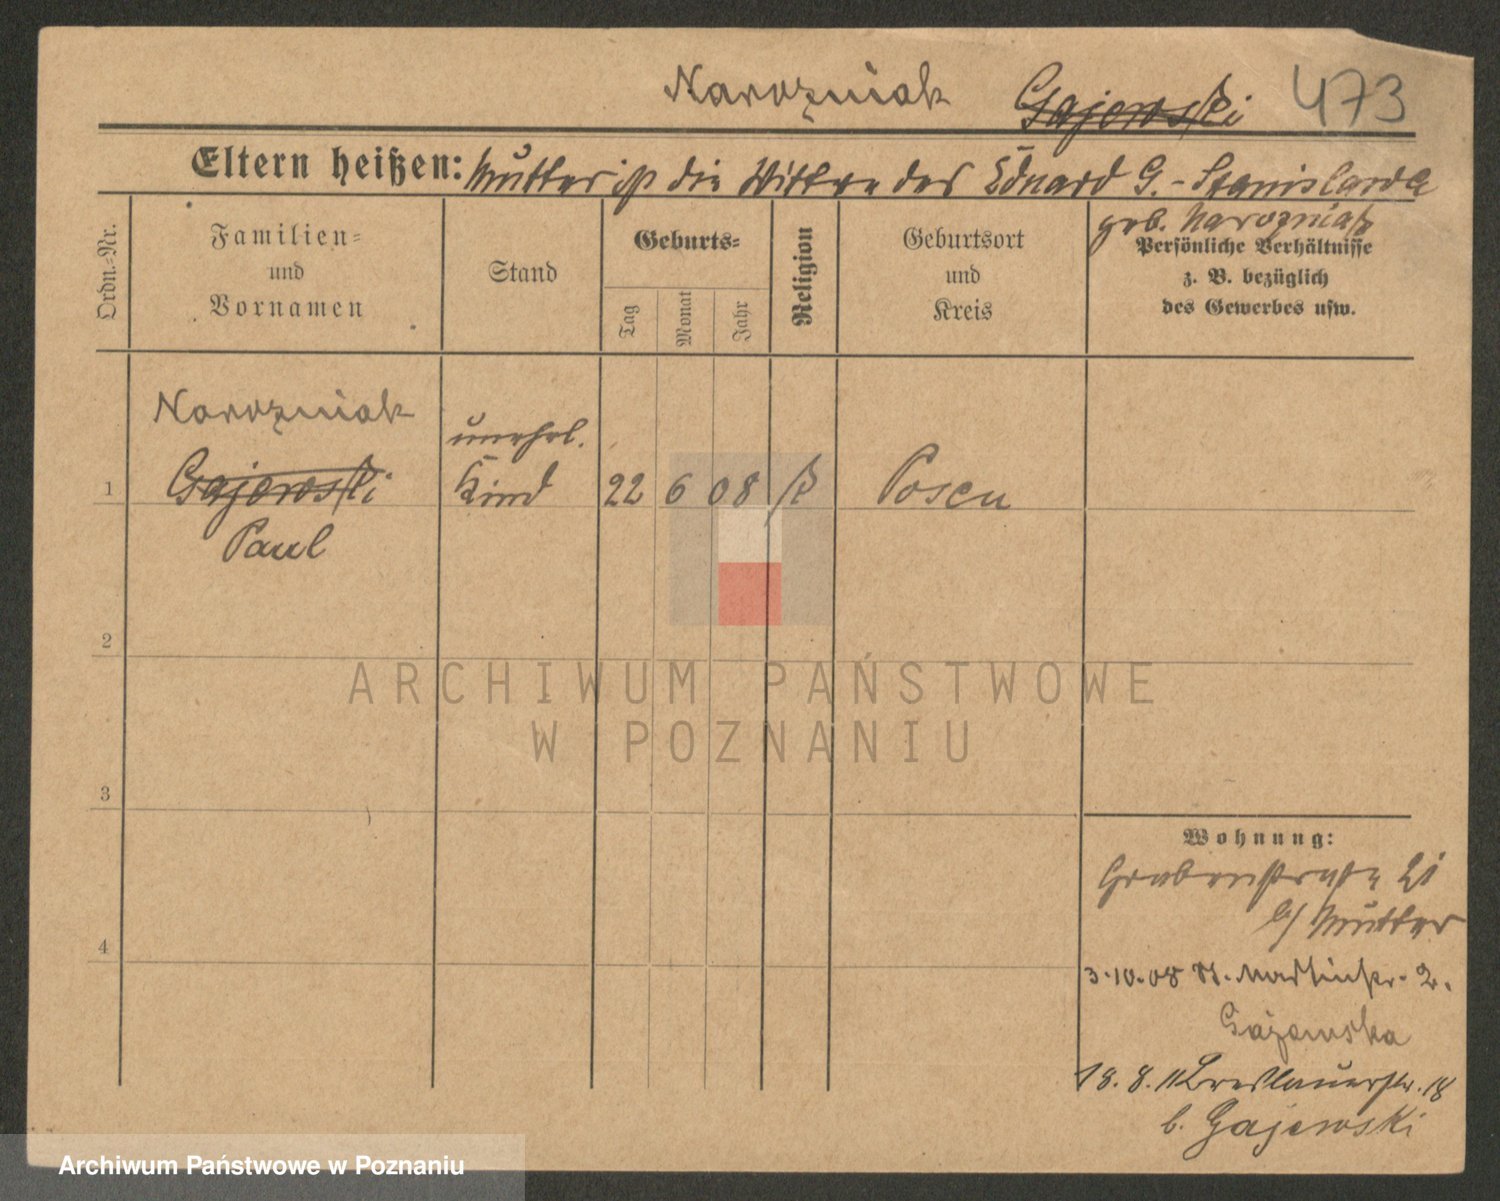 Narozniak Gajewski 473
Eltern heißen: Mutter ist die Witwe des Eduard G. - Stanislawa
geb. Narozniak
Ordn.-Nr.
Familien-
und
Vornamen
Stand
Geburts-
Tag
Monat
Jahr
Religion
Geburtsort
und
Kreis
Persönliche Verhältnisse
z. B. bezüglich
des Gewerbes usw.
Narozniak
unehel.
1 Gajewski Kind 22 6 08 k Posen
Paul
2
ARCHIWUM PAŃSTWOWE
W POZNANIU
3
Wohnung:
Grabenstraße 21
b/ Mutter
4
3.10.08 St. Martinstr. 2.
Gajewska
18. 8. 11 Breslauerstr. 18
b. Gajewski
Archiwum Państwowe w Poznaniu